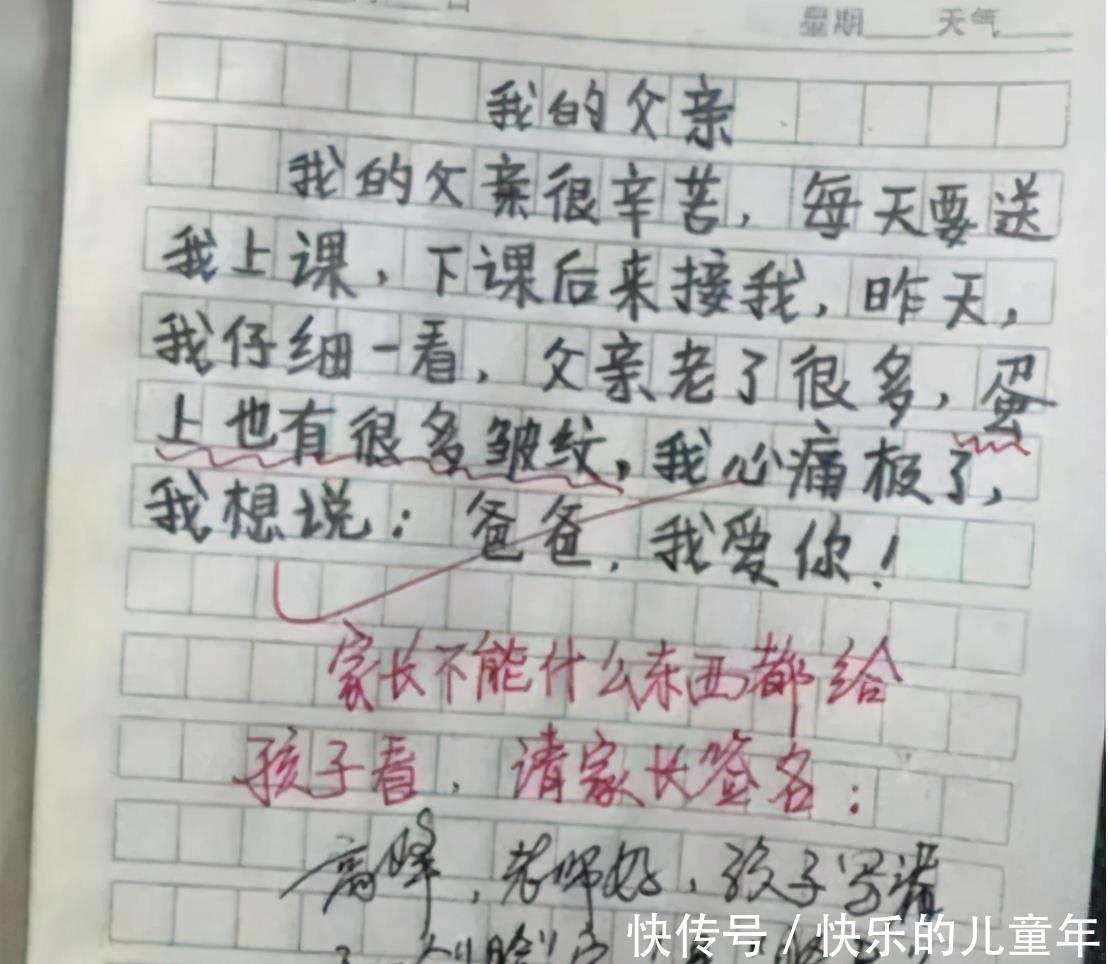 日
星期 天气
我的父亲
我的父亲很辛苦，每天要送
我上课，下课后来接我，昨天，
我仔细一看，父亲老了很多，蛋
上也有很多皱纹，我心痛极了，
我想说：爸爸，我爱你！
家长不能什么东西都给
孩子看，请家长签名：
高峰，老师好，孩子写错
快传号/快乐的儿童年